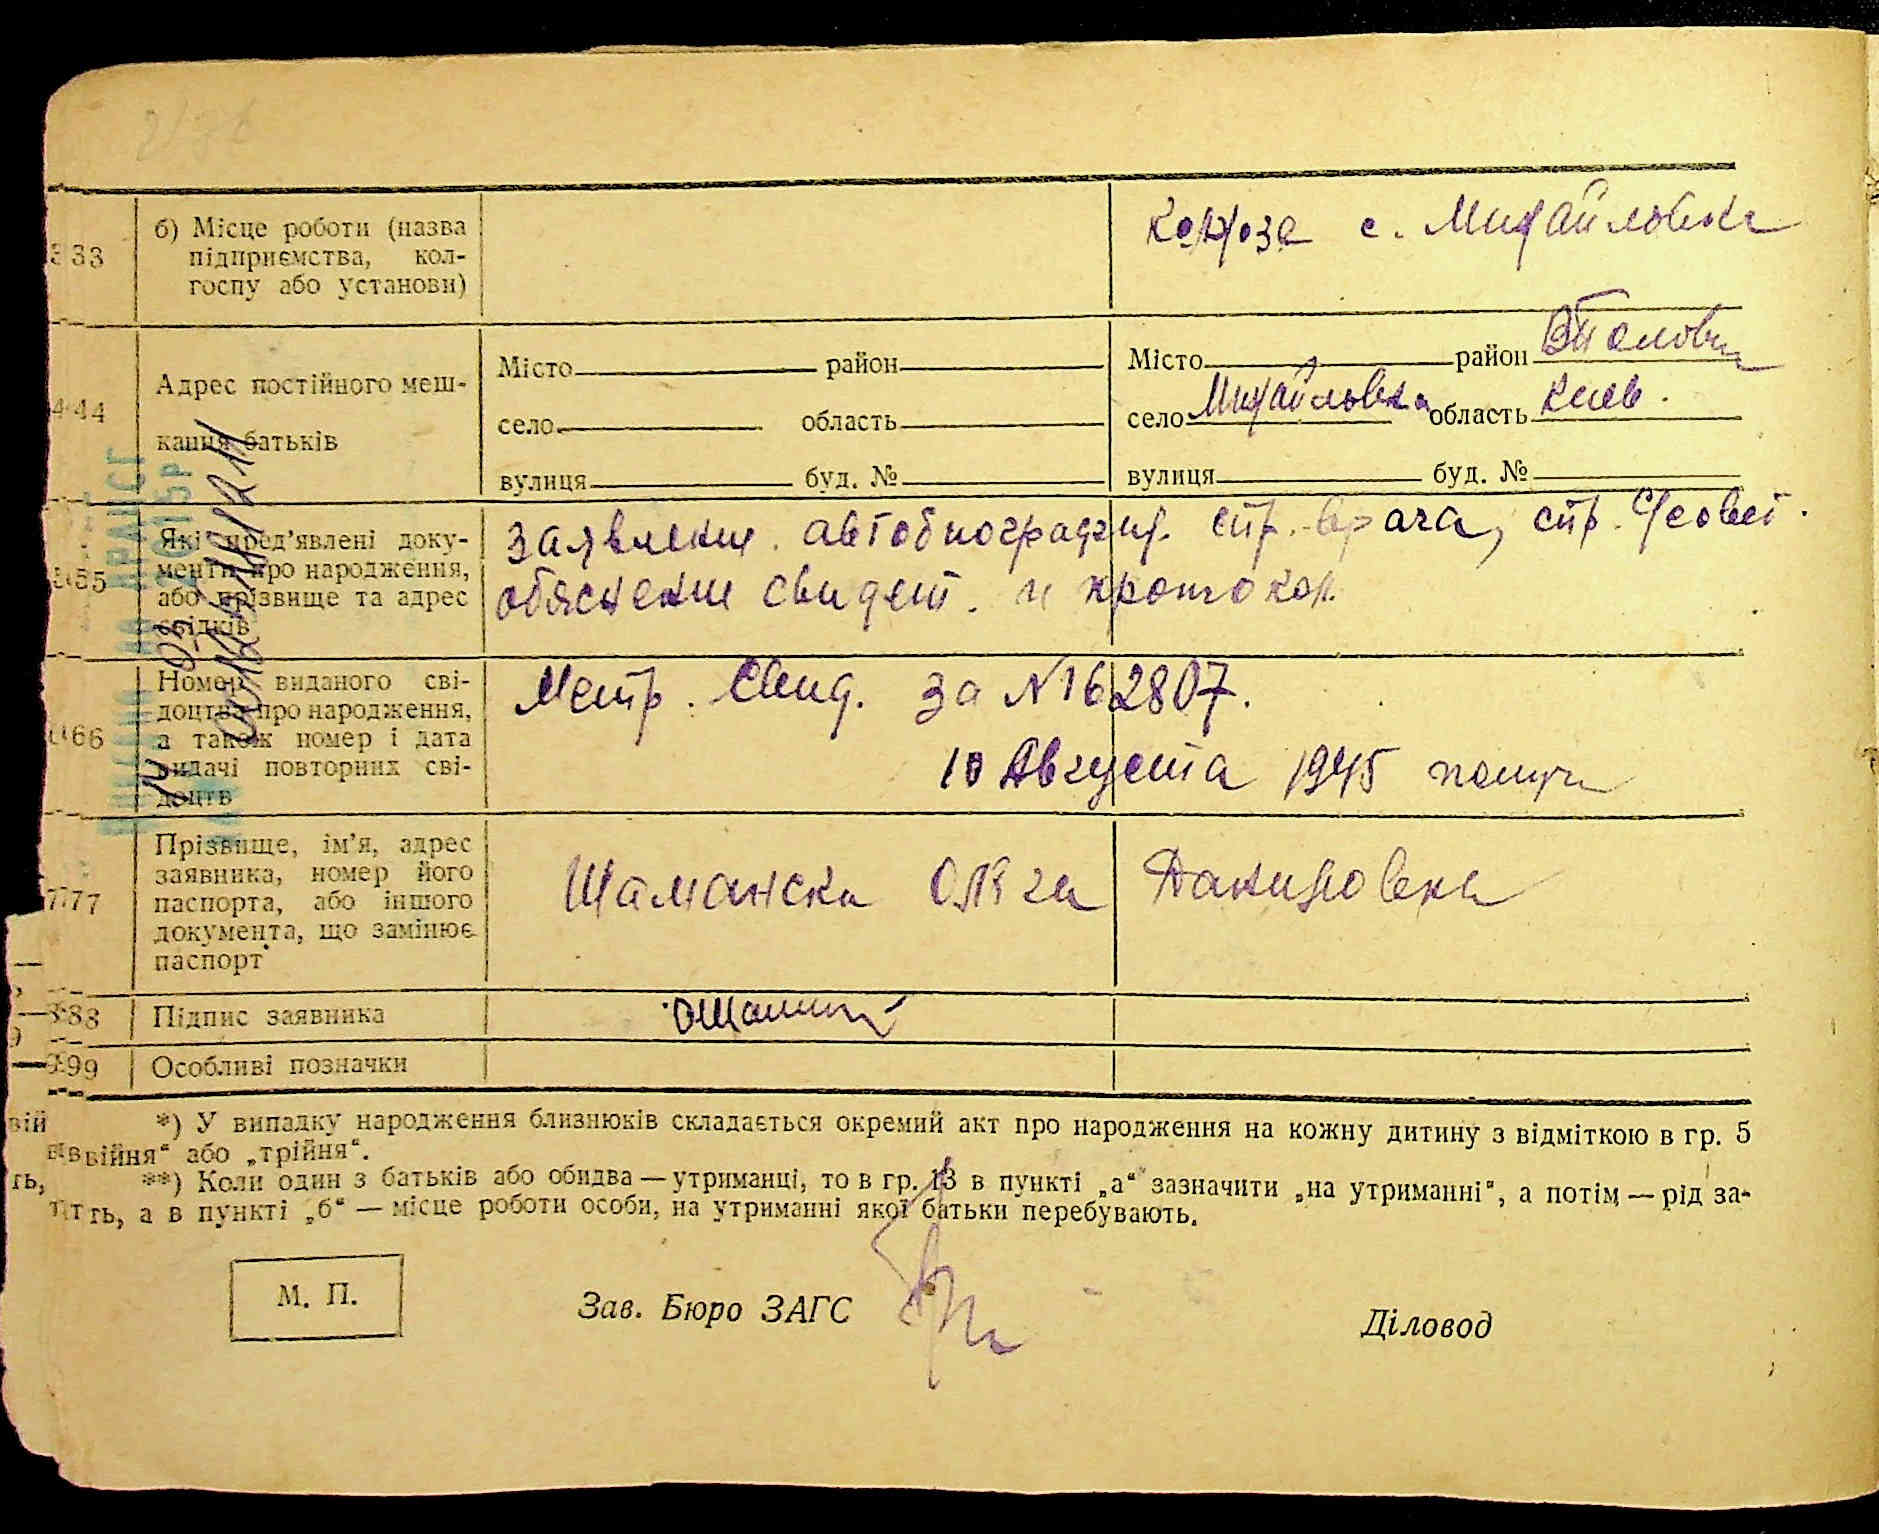 33
б) Місце роботи (назва
підприємства, кол-
госпу або установи)
колхоза с. Михайловка
44
Адрес постійного меш-
кання батьків
Місто район
село область
вулиця буд. №
Місто район
село Михайловка область Киев.
вулиця буд. №
55
Які пред’явлені доку-
менти про народження,
або прізвище та адрес
свідків
заявление. автобиография. спр. врача, спр. С/совет.
обяснение свидет. и протокол.
66
Номер виданого сві-
доцтва про народження,
а також номер і дата
видачі повторних сві-
доцтв
Метр. Свид. за №162807.
10 Августа 1945
77
Прізвище, ім’я, адрес
заявника, номер його
паспорта, або іншого
документа, що замінює
паспорт
Шаманска Ольга Даниловка
88
Підпис заявника
99
Особливі позначки
*) У випадку народження близнюків складається окремий акт про народження на кожну дитину з відміткою в гр. 5
війня“ або „трійня“.
**) Коли один з батьків або обидва — утриманці, то в гр. 13 в пункті „а“ зазначити „на утриманні“, а потім — рід за-
ть, а в пункті „б“ — місце роботи особи, на утриманні якої батьки перебувають.
М. П.
Зав. Бюро ЗАГС
Діловод